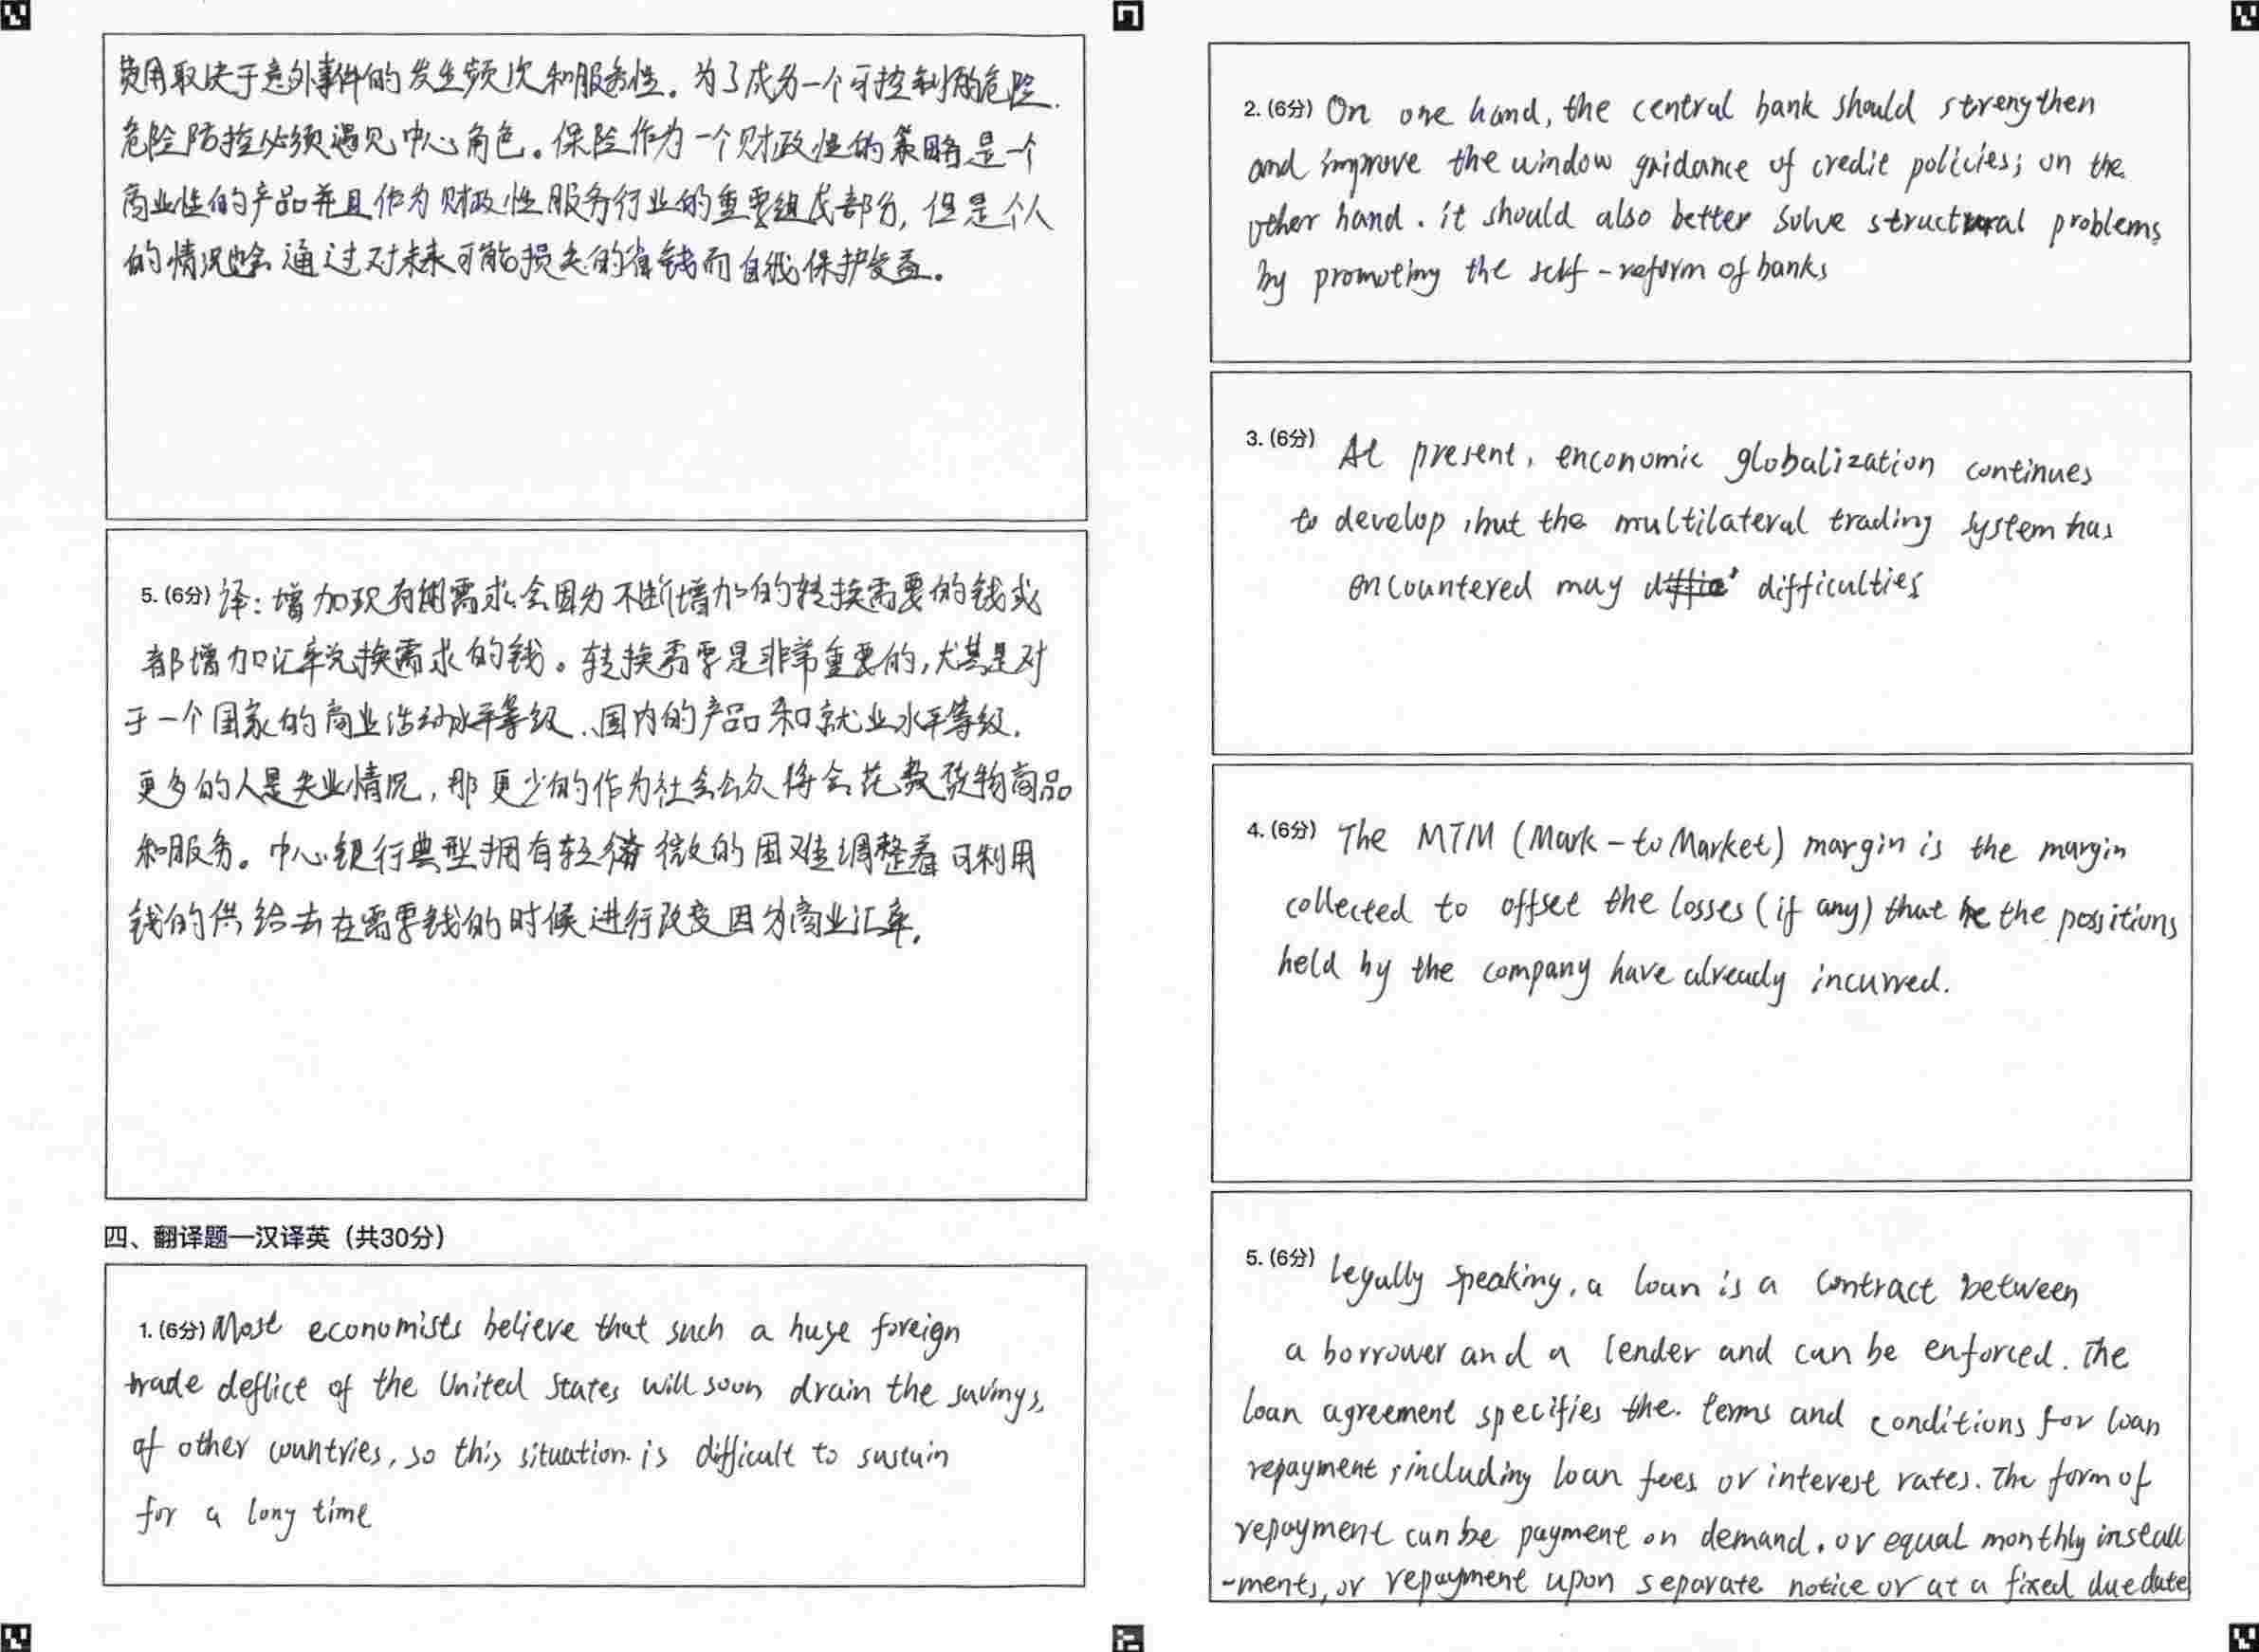 费用取决于意外事件的发生频次和服务性。为了成为一个可控制的危险.
危险防控必须遇见中心角色。保险作为一个财政性的策略是一个
商业性的产品并且作为财政性服务行业的重要组成部分,但是个人
的情况也会通过对未来可能损失的省钱而自我保护受益。
5. (6分) 译:增加现有的需求会因为不断增加的转换需要的钱或
者增加汇率兑换需求的钱。转换需要是非常重要的,尤其是对
于一个国家的商业活动水平等级、国内的产品和就业水平等级.
更多的人是失业情况,那更少的作为社会公众将会花费货物商品
和服务。中心银行典型拥有轻微的困难调整着可利用
钱的供给去在需要钱的时候进行改变因为商业汇率.
四、翻译题—汉译英(共30分)
1. (6分) Most economists believe that such a huge foreign
trade deflict of the United States will soon drain the savings,
of other countries, so this situation is difficult to sustain
for a long time
2. (6分) On one hand, the central bank should strengthen
and improve the window guidance of credit policies; on the
other hand. it should also better solve structural problems
by promoting the self-reform of banks
3. (6分) At present, enconomic globalization continues
to develop, but the multilateral trading system has
encountered may difficulties
4. (6分) The MTM (Mark-to Market) margin is the margin
collected to offset the losses (if any) that the possitions
held by the company have already incurred.
5. (6分) Legally speaking, a loan is a contract between
a borrower and a lender and can be enforced. The
loan agreement specifies the terms and conditions for loan
repayment, including loan fees or interest rates. The form of
repayment can be payment on demand, or equal monthly install
-ments, or repayment upon separate notice or at a fixed due date